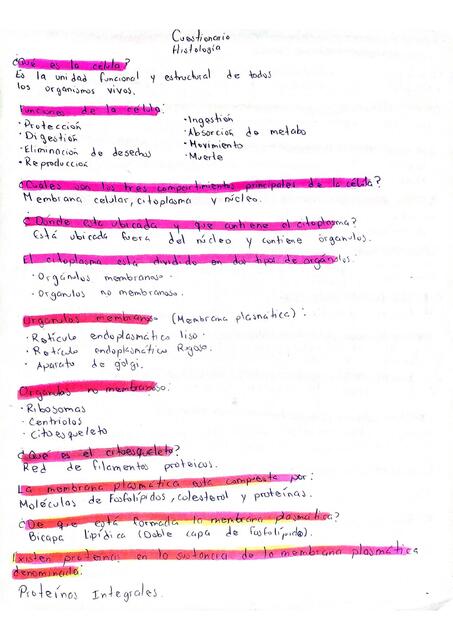 Cuestionario
Histología
¿Qué es la célula?
Es la unidad funcional y estructural de todos
los organismos vivos.
Funciones de la célula:
· Protección
· Digestión
· Eliminación de desechos
· Reproducción
· Ingestión
· Absorción de metabo
· Movimiento
· Muerte
¿Cuáles son los tres compartimientos principales de la célula?
Membrana celular, citoplasma y núcleo.
¿Dónde esta ubicada y que contiene el citoplasma?
Está ubicada fuera del núcleo y contiene órganulos.
El citoplasma esta dividido en dos tipos de orgánulos:
· Orgánulos membranosos.
· Organulos no membranosos.
Organulos membranoso (Membrana plasmatica):
· Reticulo endoplasmática liso.
· Reticulo endoplasmático Rugoso.
· Aparato de golgi.
Organulos no membranoso:
· Ribosomas
· Centriolos
· Citoesqueleto
¿Qué es el citoesqueleto?
Red de filamentos proteicos.
La membrana plasmática esta compuesta por:
Moléculas de Fosfolípidos, colesterol y proteínas.
¿De que está formada la membrana plasmatica?
Bicapa lipídica (Doble capa de fosfolípido).
Existen proteína, en la sustancia de la membrana plasmática
denominada:
Proteínas Integrales.